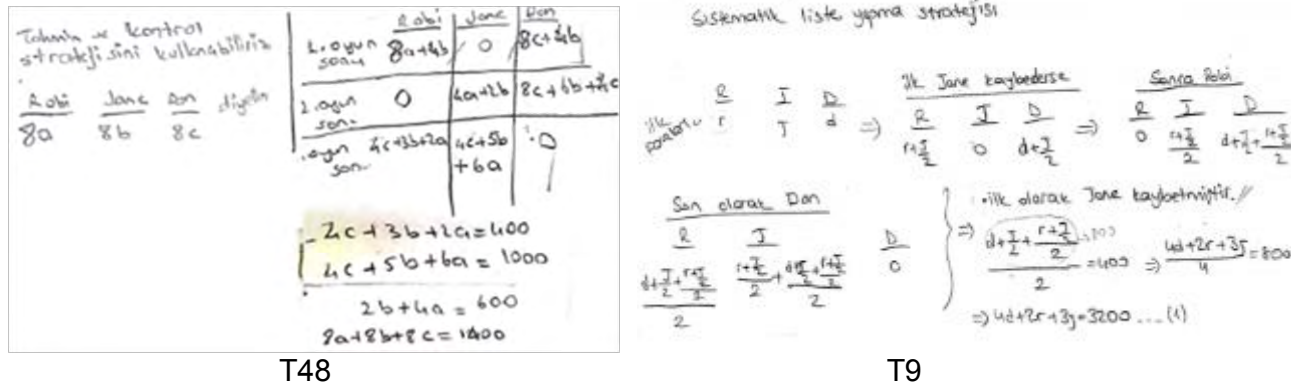 Tahmin ve kontrol
stratejisini kullanabiliriz
Robi Jane Don diyelim
8a 8b 8c
Robi Jane Don
1. oyun sonu 8a+4b 0 8c+4b
2. oyun sonu 0 4a+2b 8c+4b+
oyun son 4c+3b+2a 4c+5b+6a 0
4c+3b+2a=400
4c+5b+6a=1000
2b+4a=600
8a+8b+8c=1400
T48
Sistematik liste yapma stratejisi
ilk paraları R J D
r J d
⇒ ilk Jane kaybederse
R J D
r+J/2 0 d+J/2
⇒ Sonra Robi
R J D
0 (r+J/2)/2 d+J/2+(r+J/2)/2
Son olarak Don
R J D
(d+J/2+(r+J/2)/2)/2 (r+J/2)/2+(d+J/2+(r+J/2)/2)/2 0
•ilk olarak Jane kaybetmiştir.//
⇒ (d+J/2+(r+J/2)/2)/2=400 ⇒ (4d+2r+3J)/4=800
⇒ 4d+2r+3J=3200 ... (1)
T9